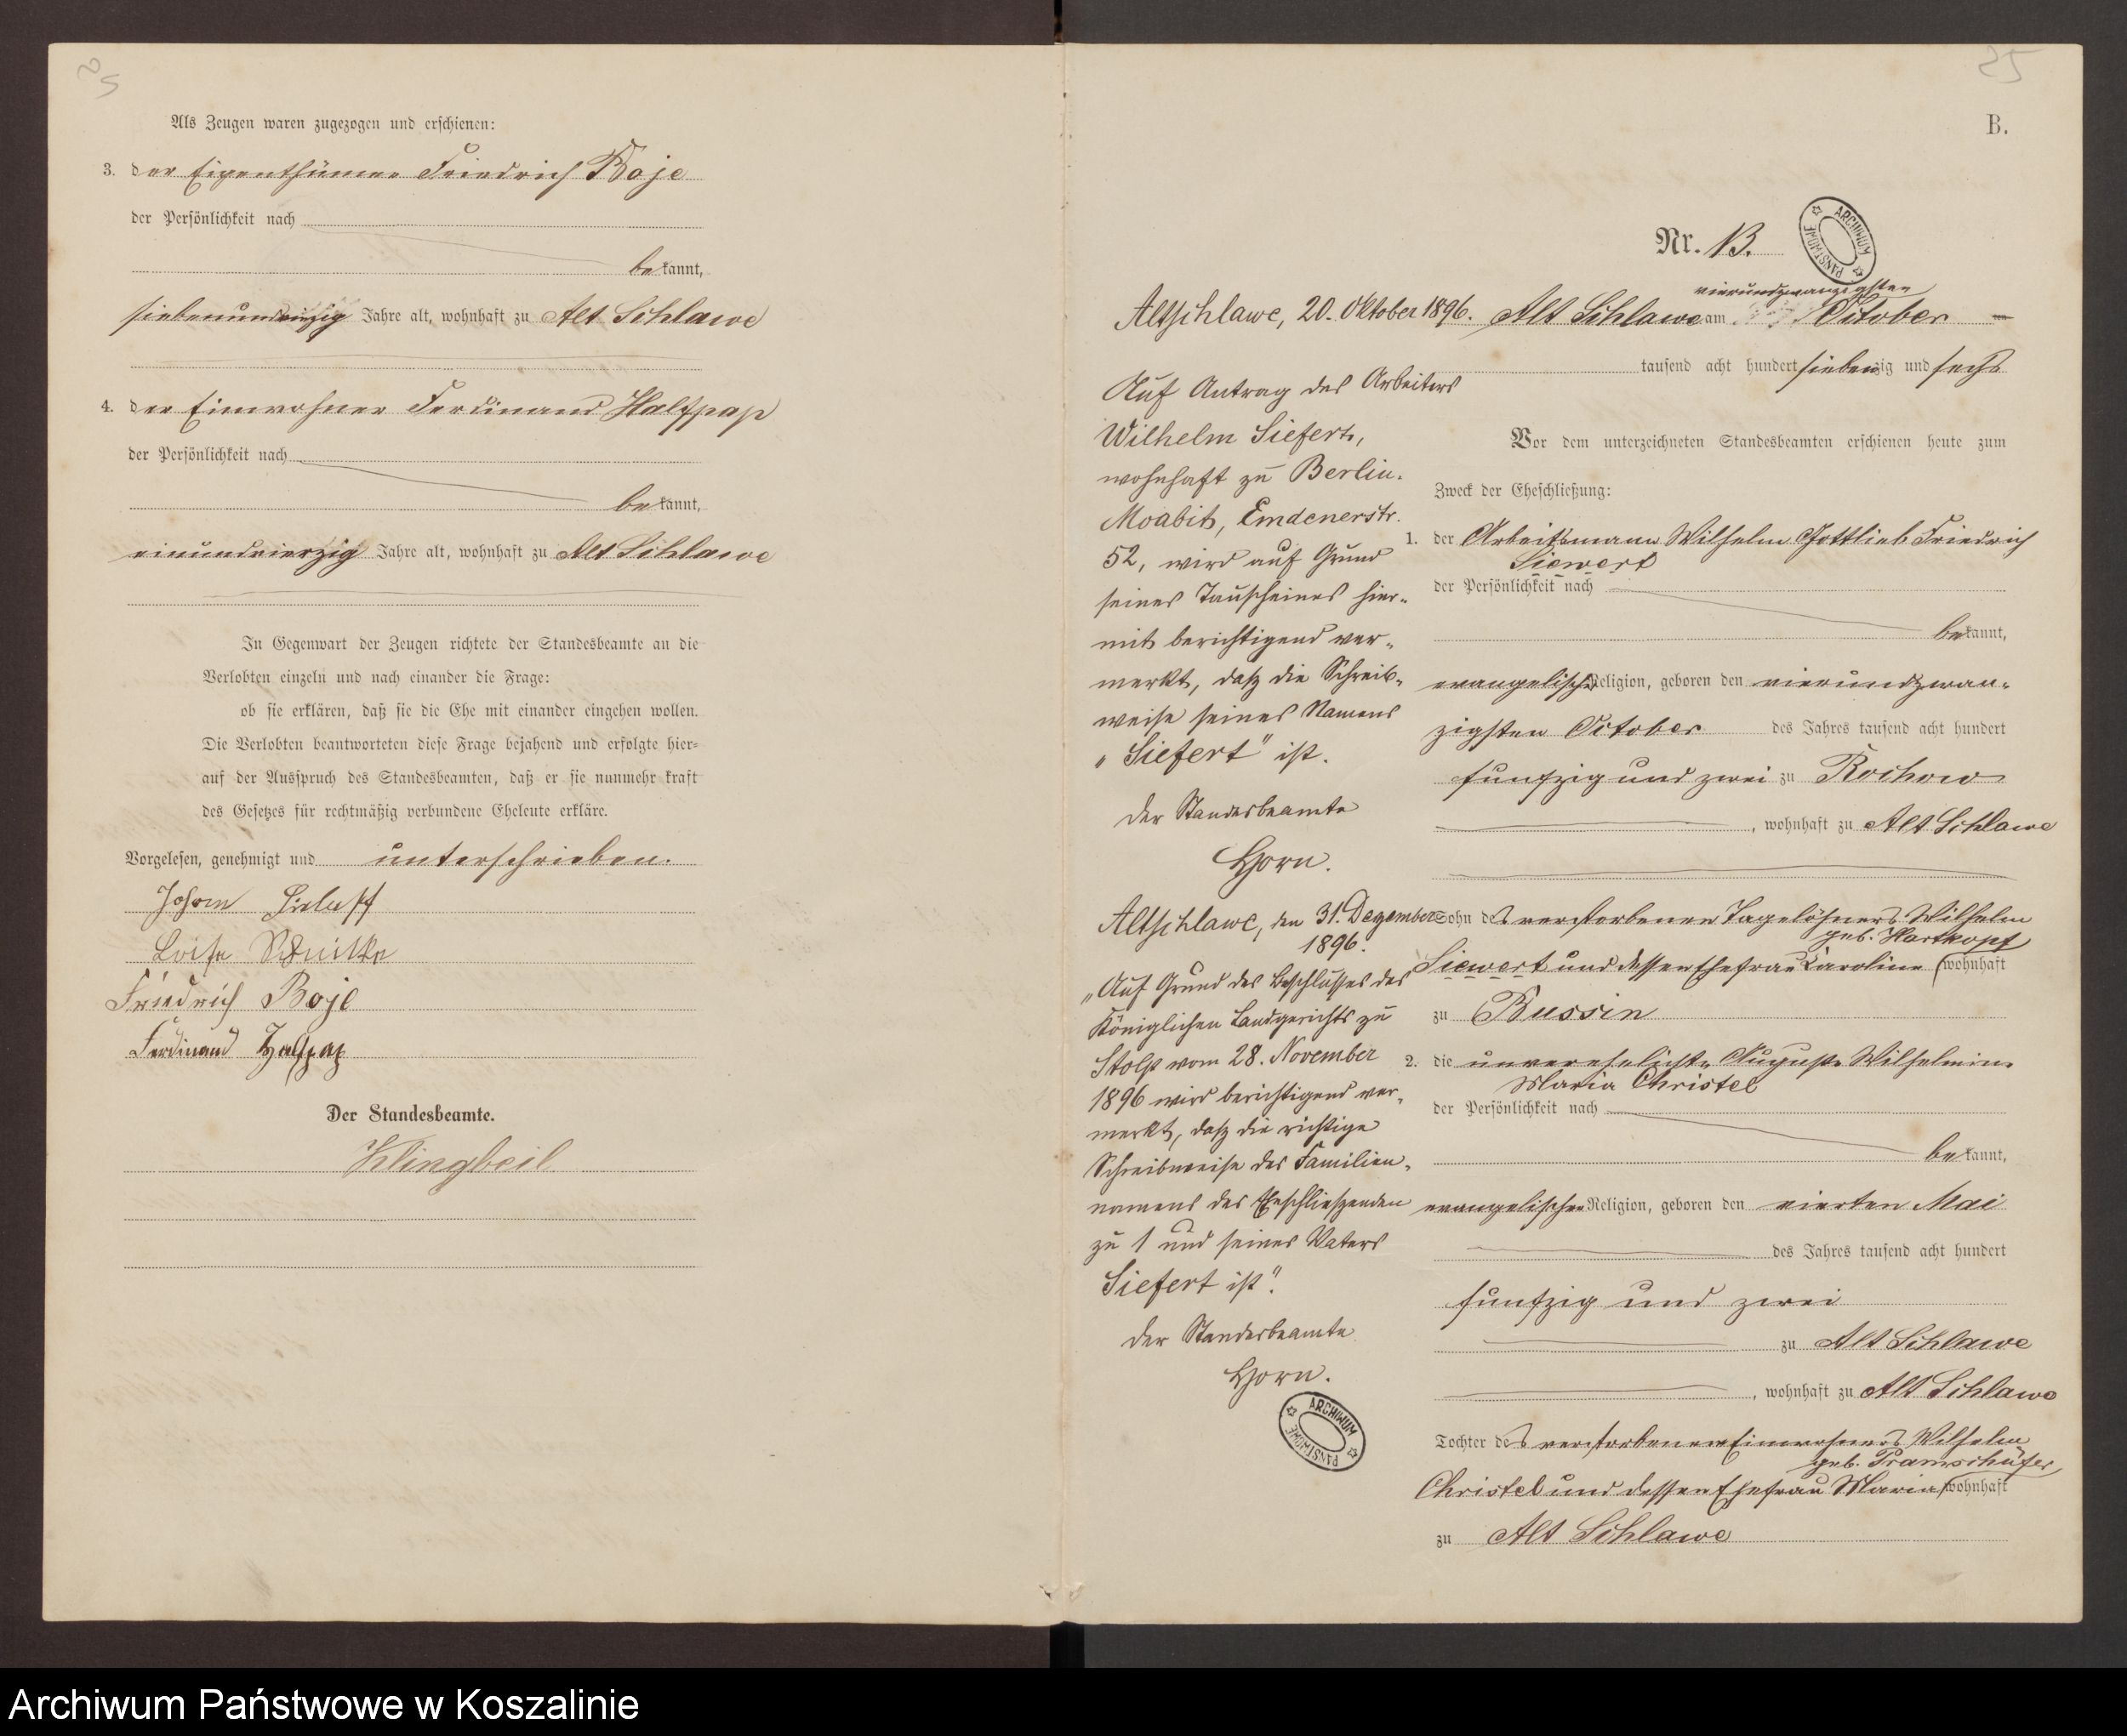 25
Als Zeugen waren zugezogen und erschienen:
3. der Eigenthümer Friedrich Boje
der Persönlichkeit nach
bekannt,
Jahre alt, wohnhaft zu Alt Schlawe
4. der Einwohner Ferdinand Halfpap
der Persönlichkeit nach
bekannt,
einundvierzig Jahre alt, wohnhaft zu Alt Schlawe
In Gegenwart der Zeugen richtete der Standesbeamte an die
Verlobten einzeln und nach einander die Frage:
ob sie erklären, daß sie die Ehe mit einander eingehen wollen.
Die Verlobten beantworteten diese Frage bejahend und erfolgte hier-
auf der Ausspruch des Standesbeamten, daß er sie nunmehr kraft
des Gesetzes für rechtmäßig verbundene Eheleute erkläre.
Vorgelesen, genehmigt und unterschrieben.
Johann
Friedrich Boje
Ferdinand Halfpap
Der Standesbeamte.
Klingbeil
25
B.
Nr. 13.
ARCHIWUM PAŃSTWOWE
vierundzwanzigsten
Alt Schlawe am October
tausend acht hundert siebenzig und sechs
Vor dem unterzeichneten Standesbeamten erschienen heute zum
Zweck der Eheschließung:
1. der Arbeitsmann Wilhelm Gottlieb Friedrich
Siewert
der Persönlichkeit nach
bekannt,
evangelischer Religion, geboren den vierundzwan-
zigsten October des Jahres tausend acht hundert
funfzig und zwei zu Rochow
, wohnhaft zu Alt Schlawe
Sohn des verstorbenen Tagelöhners Wilhelm
geb. Hartkopf
Siewert und dessen Ehefrau Caroline wohnhaft
zu Bussin
2. die unverehelichte Auguste Wilhelmine
Maria Christel
der Persönlichkeit nach
bekannt,
evangelischer Religion, geboren den vierten Mai
des Jahres tausend acht hundert
funfzig und zwei
zu Alt Schlawe
, wohnhaft zu Alt Schlawe
Tochter des verstorbenen Einwohners Wilhelm
geb.
Christel und dessen Ehefrau Maria wohnhaft
zu Alt Schlawe
Altschlawe, 20. Oktober 1896.
Auf Antrag des Arbeiters
Wilhelm Siefert,
wohnhaft zu Berlin.
Moabit, Emdenerstr.
52, wird auf Grund
seines Taufscheines hier-
mit berichtigend ver-
merkt, daß die Schreib-
weise seines Namens
„Siefert" ist.
Der Standesbeamte
Horn.
Altschlawe, den 31. Dezember
1896.
„Auf Grund des Beschlusses des
Königlichen Landgerichts zu
Stolp vom 28. November
1896 wird berichtigend ver-
merkt, daß die richtige
Schreibweise des Familien-
namens des Eheschließenden
zu 1 und seines Vaters
Siefert ist".
Der Standesbeamte
Horn.
ARCHIWUM PAŃSTWOWE
Archiwum Państwowe w Koszalinie